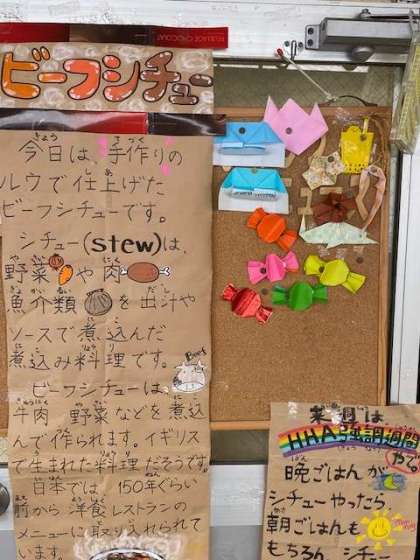 ビーフシチュー
今日は、手作りの
ルウで仕上げた
ビーフシチューです。
シチュー(stew)は、
野菜や肉
魚介類を出汁や
ソースで煮込んだ
煮込み料理です。
ビーフシチューは、
牛肉 野菜などを煮込
んで作られます。イギリス
で生まれた料理だそうです。
日本では、150年ぐらい
前から洋食レストランの
メニューに取り入れられて
います。
来週は
HHA強調週間
やで
晩ごはんが
シチューやったら
朝ごはんも
もちろんシチュー